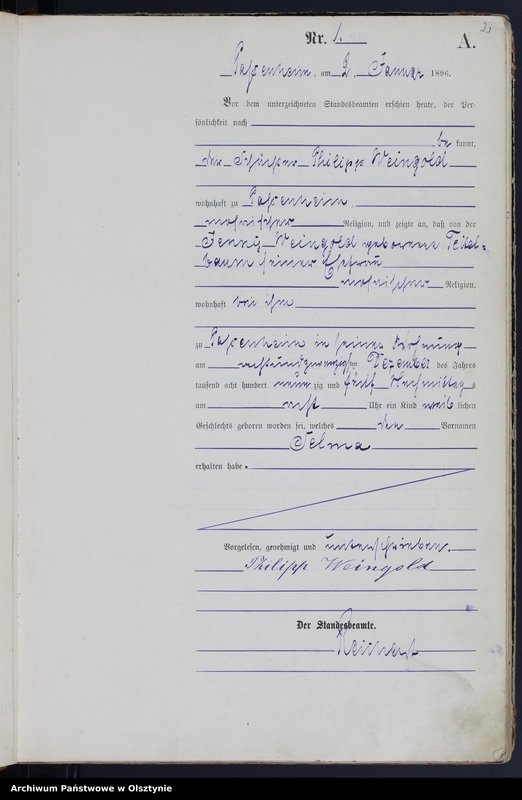 2
Nr. 1.
A.
Passenheim, am 2. Januar 1896.
Vor dem unterzeichneten Standesbeamten erschien heute, der Per-
sönlichkeit nach
be kannt,
der Philipp Weingold
wohnhaft zu Passenheim,
mosaischer Religion, und zeigte an, daß von der
Jenny Weingold geborene Teitel-
baum seiner Ehefrau
mosaischer Religion,
wohnhaft bei ihm
zu Passenheim in seiner Wohnung
am achtundzwanzigsten Dezember des Jahres
tausend acht hundert neun zig und fünf Nachmittags
um acht Uhr ein Kind weib lichen
Geschlechts geboren worden sei, welches den Vornamen
Selma
erhalten habe.
Vorgelesen, genehmigt und unterschrieben.
Philipp Weingold
Der Standesbeamte.
Reichert
Archiwum Państwowe w Olsztynie